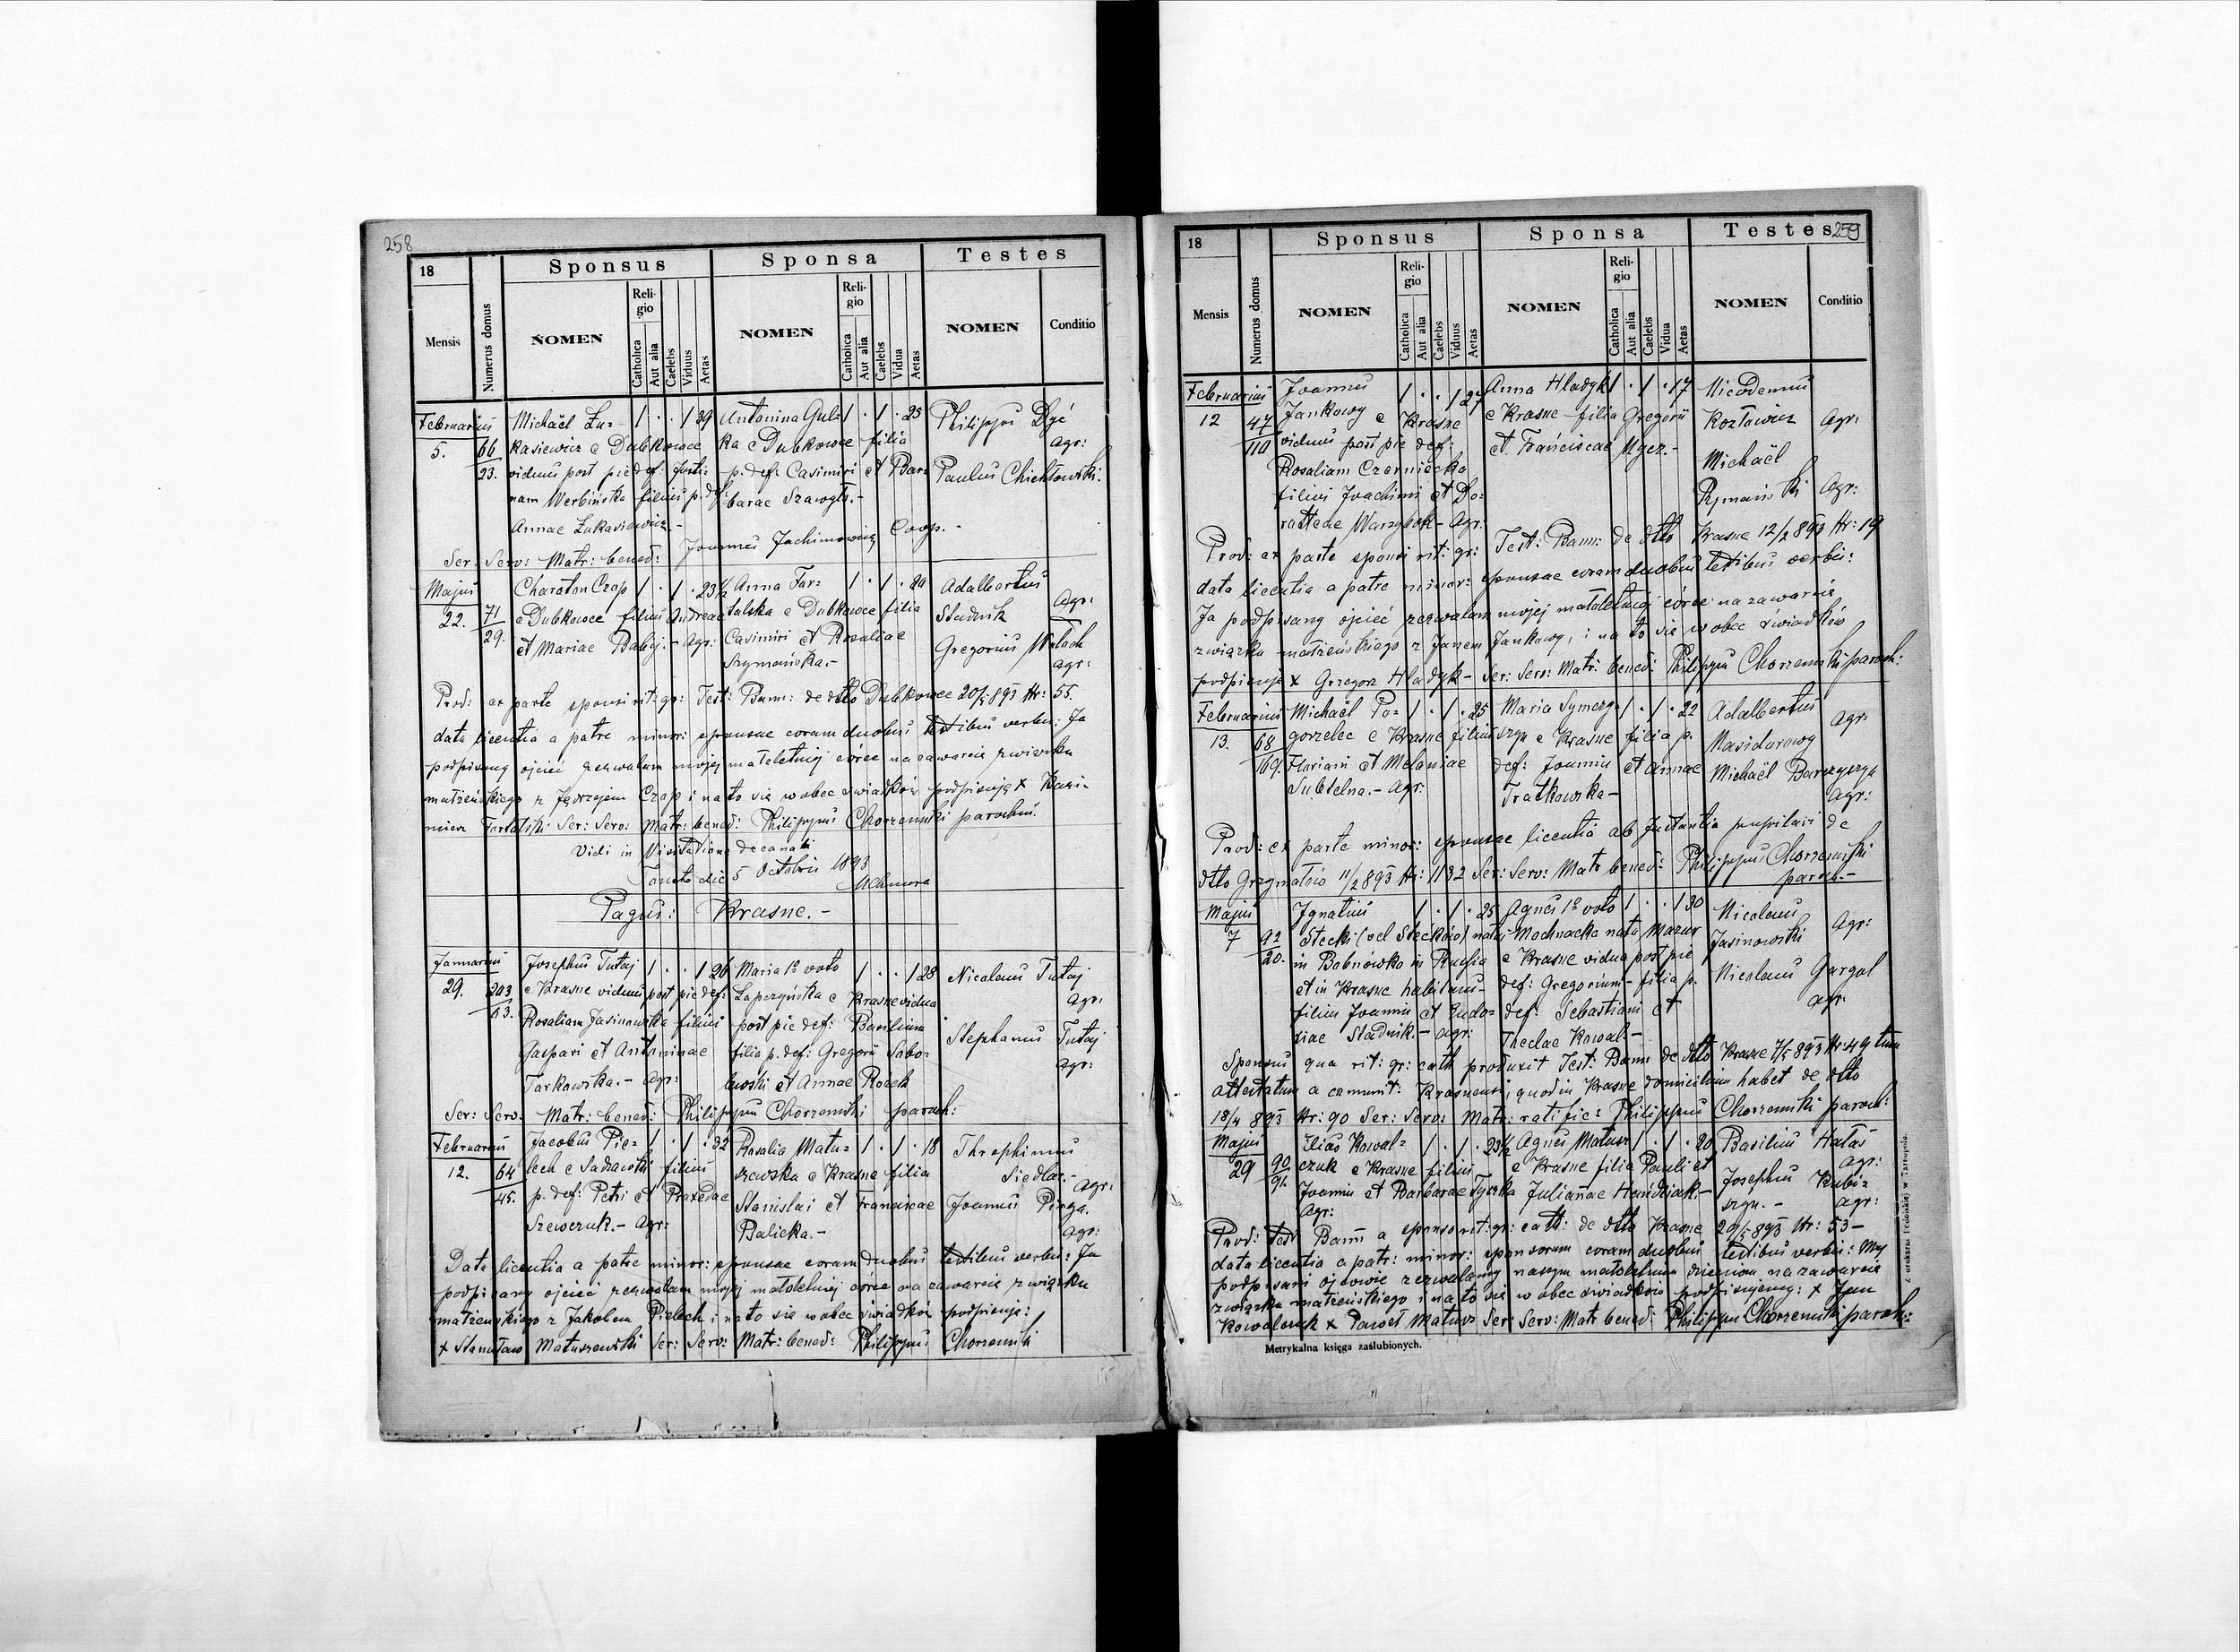 258
18 Sponsus Sponsa Testes
Mensis Numerus domus NOMEN Religio Catholica Aut alia Caelebs Viduus Aetas NOMEN Religio Catholica Aut alia Caelebs Vidua Aetas NOMEN Conditio
Februarius Michaël Łu- 1 . . 1 39 Antonina Gul- 1 . 1 . 25 Philippus Dyć
5. 66 kasiewicz e Dubkowce ka e Dubkowce filia Agr:
23. viduus post pie def: Justi- p. def: Casimiri et Bar- Paulus
nam Werbińska filius p. def: barae
Annae Łukasiewicz.-
Ser: Serv: Matr: bened: Joannes Jachimowicz Coop. -
Majus Charaton Czop 1 . 1 . 23½ Anna Tar- 1 . 1 . 20 Adalbertus
22. 71 e Dubkowce filius Andreae talska e Dubkowce filia Studnik Agr:
29. et Mariae Babij.- Agr: Casimiri et Rosaliae Gregorius Wołoch
Szymańska.- agr:
Prod: ex parte sponsi rit: gr: Test: Bann: de dtto Dubkowce 20/5 893 Nr: 55.
data licentia a patre minor: sponsae coram duobus testibus verbis: Ja
podpisany ojciec zezwalam mojej małoletniej córce na zawarcie związku
małżeńskiego z Jędrzejem Czop i na to się wobec świadków podpisuję + Kazi-
mierz Tartalski Ser: Serv: Matr: bened: Philippus Chorzemski parochus.
Vidi in Visitatione decanali
die 5 Octobris 1893
Pagus: Krasne.-
Januarius Josephus Tutaj 1 . . 1 26 Maria 1º voto 1 . . 1 28 Nicolaus Tutaj
29. 203 e Krasne viduus post pie def: Łapczyńska e Krasne vidua agr:
63. Rosaliam Jasinowska filius post pie def: Basilium Stephanus Tutaj
Gaspari et Antoninae filia p. def: Gregorii Sobo- agr:
Tarkowska.- Agr: lewski et Annae
Ser: Serv: Matr: bened: Philippus Chorzemski paroch:
Februarius Jacobus Pie- 1 . 1 . 32 Rosalia Matu- 1 . 1 . 18
12. 64 lech e Sadzawki filius szewska e Krasne filia Siedlar.-
45. p. def: Petri et Praxedae Stanislai et Franciscae Joannes Agr:
Szewczuk.- Agr: Balicka.- Agr:
Data licentia a patre minor: sponsae coram duobus testibus verbis: Ja
podpisany ojciec zezwalam mojej małoletniej córce na zawarcie związku
małżeńskiego z Jakobem Pielech i na to się wobec świadków podpisuję:
+ Stanisław Matuszewski Ser: Serv: Matr: bened: Philippus Chorzemski
259
18 Sponsus Sponsa Testes
Mensis Numerus domus NOMEN Religio Catholica Aut alia Caelebs Viduus Aetas NOMEN Religio Catholica Aut alia Caelebs Vidua Aetas NOMEN Conditio
Februarius Joannes 1 . . 1 27 Anna Hladyk 1 . 1 . 17 Nicodemus
12 47 Jankowy e Krasne e Krasne filia Gregorii Kozłowicz Agr:
110 viduus post pie def: et Franciscae Michaël
Rosaliam Czerniecka Rymański Agr:
filius Joachimi et Do-
- Agr:
Prod: ex parte sponsi rit: gr: Test: Bann: de dtto Krasne 12/2 893 Nr: 19
data licentia a patre minor: sponsae coram duobus testibus verbis:
Ja podpisany ojciec zezwalam mojej małoletniej córce na zawarcie
związku małżeńskiego z Janem Jankowy, i na to się wobec świadków
podpisuję + Grzegorz Hladyk - Ser: Serv: Matr: bened: Philippus Chorzemski paroch:
Februarius Michaël Po- 1 . 1 . 25 Maria 1 . 1 . 22 Adalbertus
13. 68 gorzelec e Krasne filius e Krasne filia p. Agr:
169. Floriani et Melaniae def: Joannis et Annae Michaël
Subtelna.- Agr: Tratkowska- Agr:
Prod: ex parte minor: sponsae licentia ab Instantia pupilari de
dtto Grzymałów 11/2 893 Nr: 1132 Ser: Serv: Matr: bened: Philippus Chorzemski
paroch.-
Majus Ignatius 1 . 1 . 25 Agnes 1º voto 1 . . 1 30 Nicolaus
7 92 Stecki (vel Steckow) natus Mochnacka nata Mazur Jasinowski Agr:
20. in Bobnówka in Russia e Krasne vidua post pie
et in Krasne habitans- def: Gregorium - filia p. Nicolaus Gargol
filius Joannis et Eudo- def: Sebastiani et agr:
xiae Stadnik.- Agr: Theclae Kowal-
Sponsus qua rit: gr: cath produxit Test: Bann de dtto Krasne 7/5 893 Nr: 49 tum
attestatum a communit: Krasnensi, quod in Krasne domicilium habet de dtto
18/4 893 Nr: 90 Ser: Serv: Matr: ratific: Philippus Chorzemski paroch:
Majus Elias Kowal- 1 . 1 . 23½ Agnes Matusz 1 . 1 . 20 Basilius Hałas
29 90 czuk e Krasne filius e Krasne filia Pauli et Agr:
91. Joannis et Barbarae Tyszka Julianae Josephus
Agr: Agr:
Prod: Test Bann a sponso rit: gr: cath: de dtto Krasne 20/5 893 Nr: 53-
data licentia a patr: minor: sponsorum coram duobus testibus verbis: My
podpisani ojcowie zezwalamy naszym małoletnim dzieciom na zawarcie
związku małżeńskiego i na to się wobec świadków podpisujemy: + Jan
Kowalczuk + Paweł Matusz Ser: Serv: Matr: bened: Philippus Chorzemski paroch:
Metrykalna księga zaślubionych.